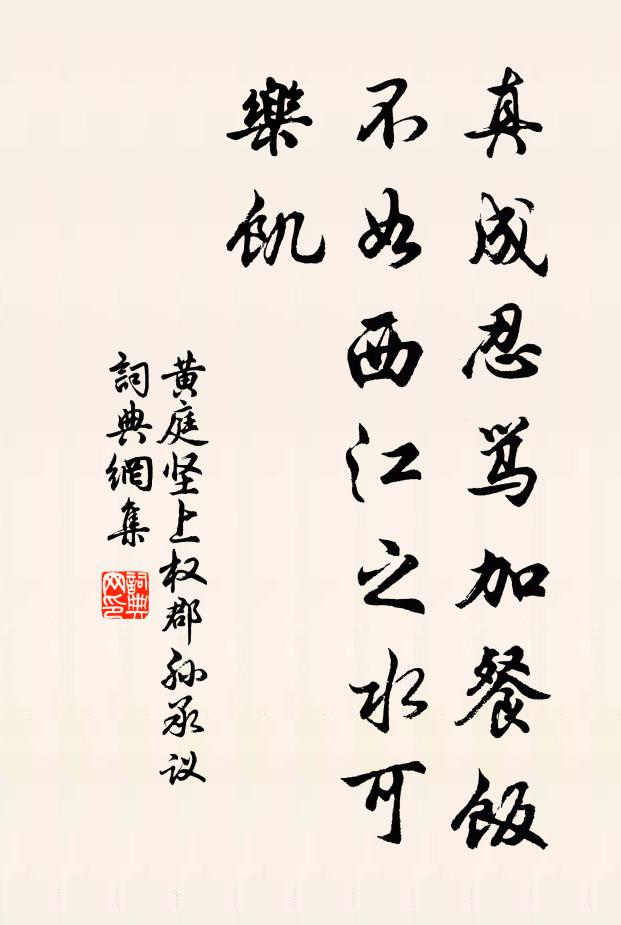 真成忍骂加餐饭
不如西江之水可
樂飢
黄庭坚上权郡孙承议
詞典網集
詞典网印